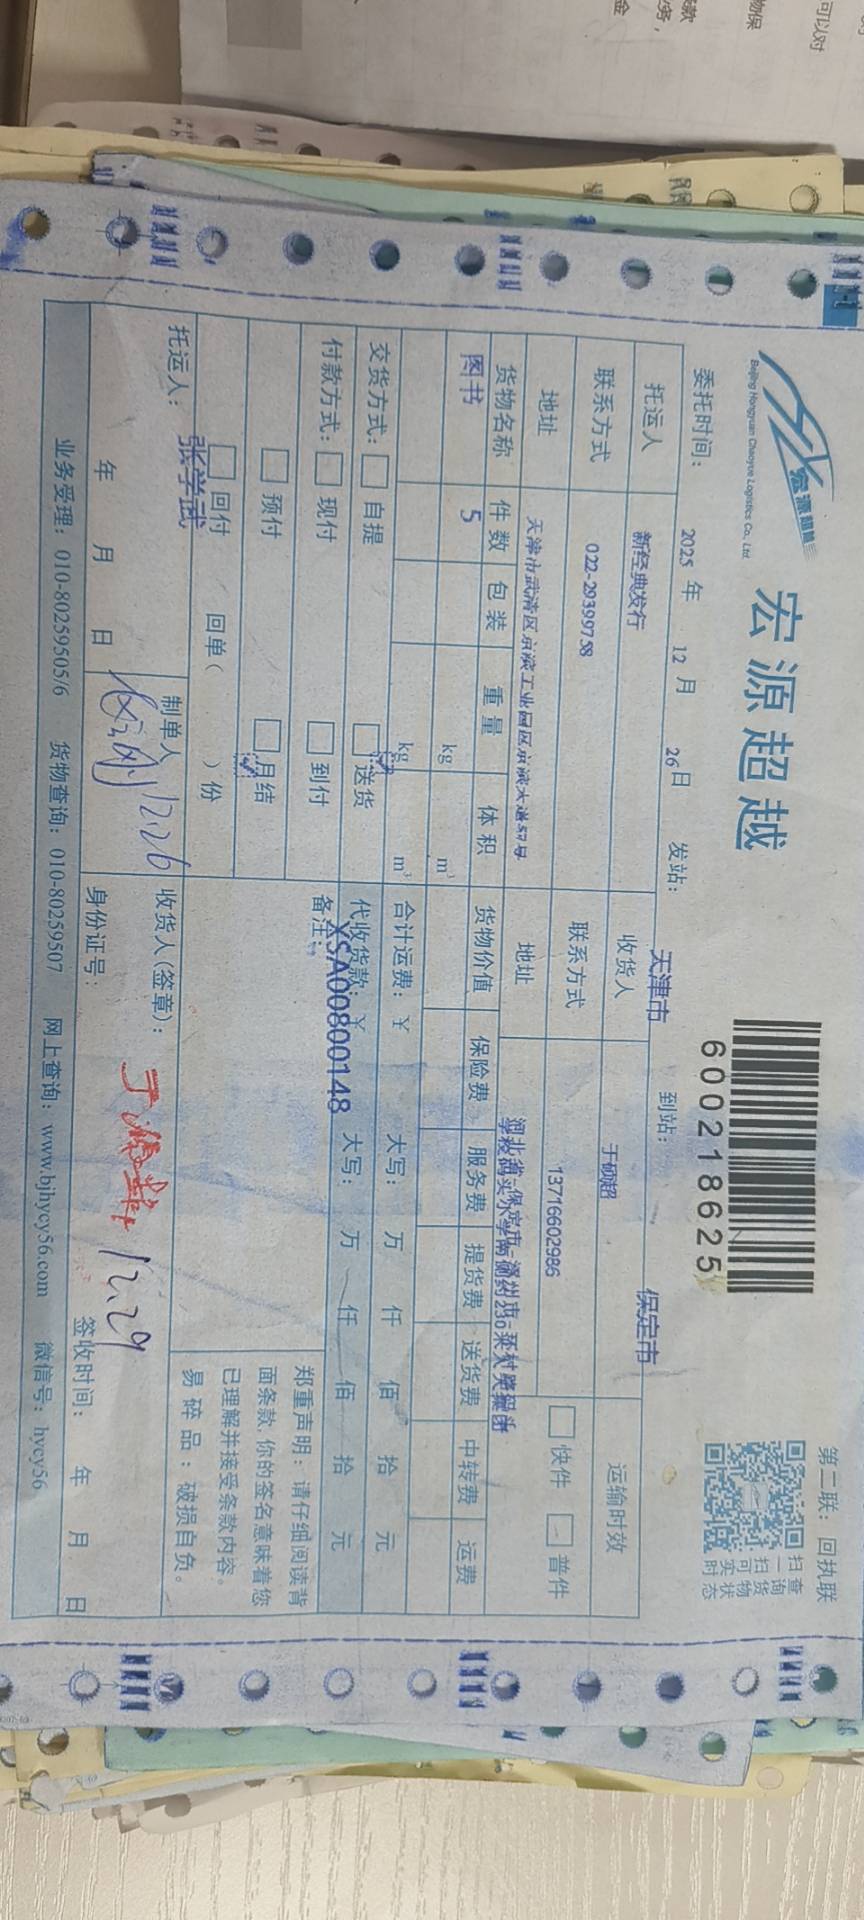 宏源超越
Beijing Hongyuan Chaoyue Logistics Co., Ltd.
宏源超越
600218625
第二联：回执联
扫一扫可实时
查询货物状态
委托时间： 2025 年 12 月 26 日 发站： 天津市 到站： 保定市
托运人 新经典发行 收货人 于硕超 运输时效
联系方式 022-29399758 联系方式 13716602986 快件 普件
地址 天津市武清区京滨工业园区京滨大道57号 地址
货物名称 件数 包装 重量 体积 货物价值 保险费 服务费 提货费 送货费 中转费 运费
图书 5 kg m³
kg m³
交货方式： 自提 送货 合计运费：￥ 大写： 万 仟 佰 拾 元
付款方式： 现付 到付 代收货款：￥ 大写： 万 仟 佰 拾 元
预付 月结 备注： XSA00800148
回付 回单（ ）份
郑重声明：请仔细阅读背
面条款，你的签名意味着您
已理解并接受条款内容。
易碎品：破损自负。
托运人： 张学武 制单人 12.26 收货人（签章）： 12.29
年 月 日 身份证号： 签收时间： 年 月 日
业务受理：010-80259505/6 货物查询：010-80259507 网上查询：www.bjhycy56.com 微信号：hycy56